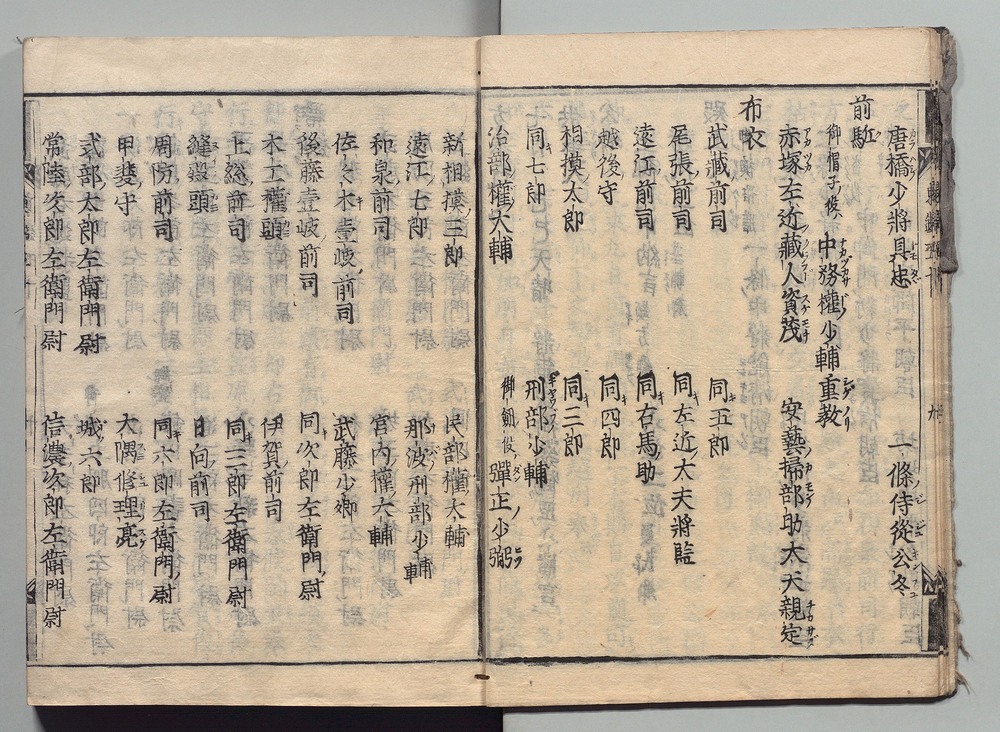 唐橋少將具忠 一條侍從公冬
前駈
御帽子役 中務權少輔重教
赤塚左近藏人資茂 安藝掃部助大夫親定
布衣
武藏前司 同五郎
尾張前司 同左近大夫將監
遠江前司 同右馬助
越後守 同四郎
相摸太郎 同三郎
同七郎 刑部少輔
治部權大輔 御劔役 彈正少弼
新相摸三郎 民部權大輔
遠江七郎 那波刑部少輔
和泉前司 宮内權大輔
佐々木壹岐前司 武藤少卿
後藤壹岐前司 同次郎左衛門尉
木工權頭 伊賀前司
上総前司 同三郎左衛門尉
縫殿頭 日向前司
周防前司 同六郎左衛門尉
甲斐守 大隅修理亮
式部太郎左衛門尉 城六郎
常陸次郎左衛門尉 信濃次郎左衛門尉